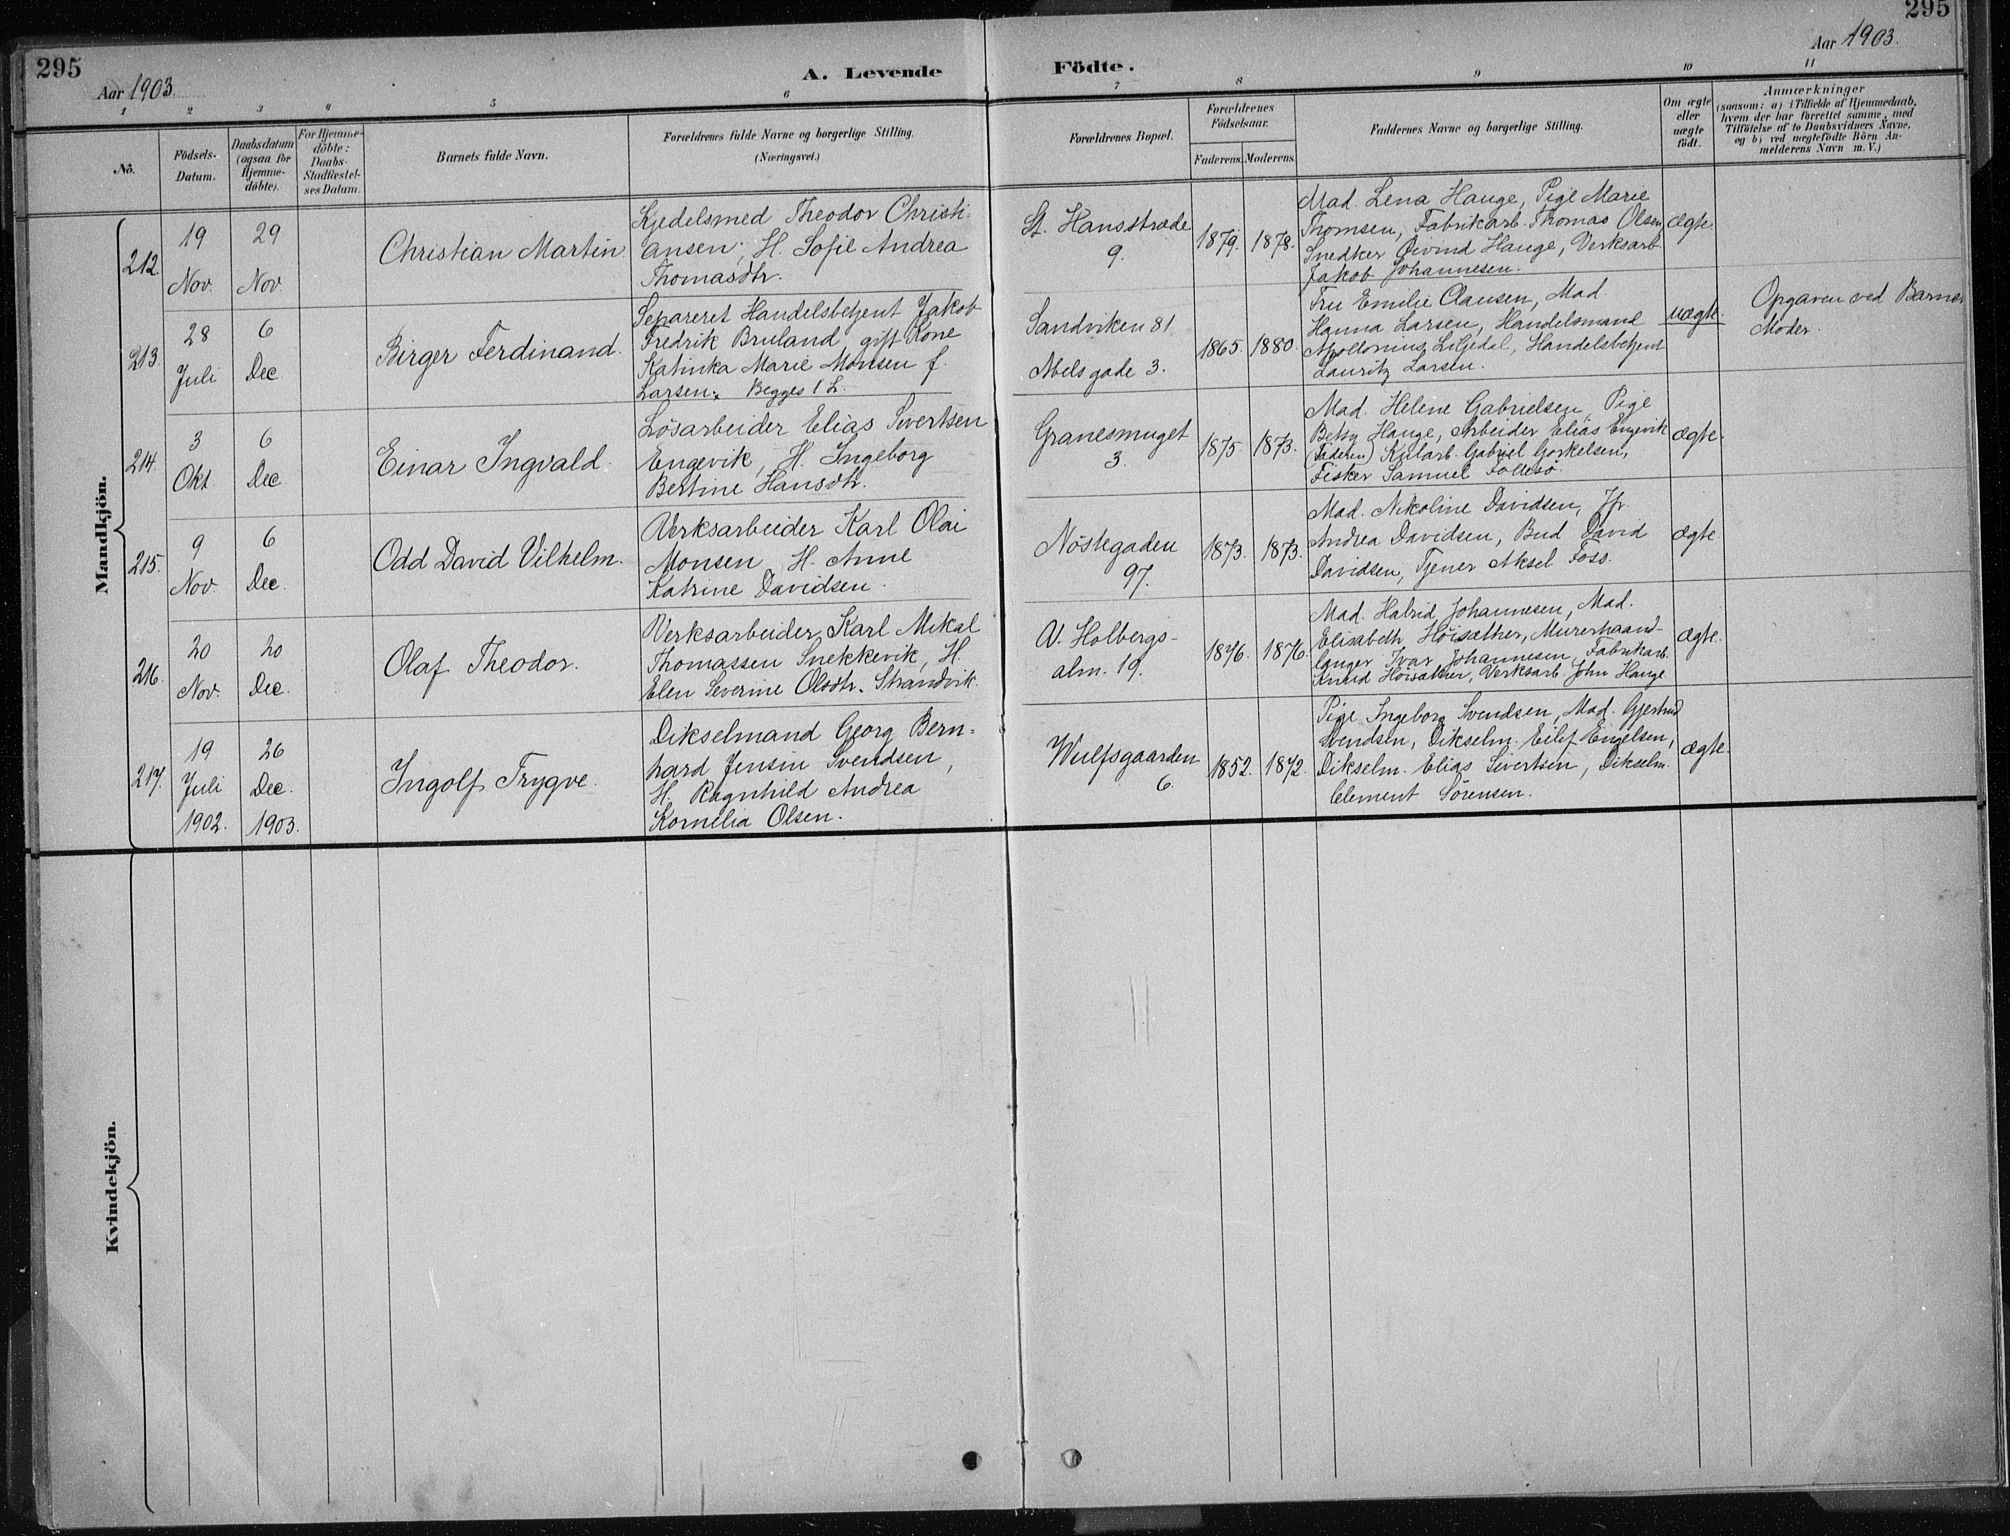 295
Aar 1903.
A. Levende
Födte.
Aar 1903.
295
1 2 3 4 5 6 7 8 9 10 11
No.
Födsels-
Datum.
Daabsdatum
(ogsaa for
Hjemme-
döbte).
For Hjemme-
döbte:
Daabs-
Stadfæstel-
ses Datum.
Barnets fulde Navn.
Forældrenes fulde Navne og borgerlige Stilling.
(Næringsvei.)
Forældrenes Bopæl.
Forældrenes
Födselsaar.
Faderens. Moderens.
Faddernes Navne og borgerlige Stilling.
Om ægte
eller
uægte
födt.
Anmærkninger
(saasom: a) i Tilfælde af Hjemmedaab,
hvem der har forrettet samme, med
Tilföielse af to Daabsvidners Navne,
og b) ved uægtefödte Börn An-
melderens Navn m. V.)
Mandkjön.
212.
19
Nov.
29
Nov.
Christian Martin
Kjedelsmed Theodor Christi-
ansen, H. Sofie Andrea
Thomasdtr.
St. Hansstræde
9.
1879. 1878.
Mad. Lena Hauge, Pige Marie
Thomsen, Fabrikarb. Thomas Olsen,
Snedker Øivind Hauge, Verksarb.
Jakob Johannesen.
ægte.
213.
28
Juli
6
Dec.
Birger Ferdinand.
Separeret Handelsbetjent Jakob
Fredrik Bruland, gift Kone
Katinka Marie Monsen f.
Larsen. Begges 1 L.
Sandviken 81
Abelsgade 3.
1865. 1880.
Fru Emilie Clausen, Mad
Hanna Larsen, Handelsmand
Apollonius Liljedal, Handelsbetjent
Lauritz Larsen.
uægte.
Opgaven ved Barnets
Moder.
214.
3
Okt.
6
Dec.
Einar Ingvald.
Løsarbeider Elias Sivertsen
Engevik, H. Ingeborg
Bertine Hansdtr.
Granesmuget
3.
1875. 1873.
Mad. Helene Gabrielsen, Pige
Betsy Hauge, Arbeider Elias Engevik
(Faderen) Kularb. Gabriel
Fisker Samuel Follesø.
ægte.
215.
9
Nov.
6
Dec.
Odd David Vilhelm.
Verksarbeider Karl Olai
Monsen, H. Anne
Katrine Davidsen.
Nøstegaden
97.
1873. 1873.
Mad. Nikoline Davidsen, Jfr.
Andrea Davidsen, Bud David
Davidsen, Tjener Aksel Foss.
ægte
216.
20
Nov.
20
Dec.
Olaf Theodor.
Verksarbeider Karl Mikal
Thomassen Snekkevik, H.
Elen Severine Olsdtr. Strandvik.
V. Holbergs-
alm. 19.
1876. 1876.
Mad. Johannesen, Mad.
Elisabeth Høisæther, Murerhaand-
langer Ivar Johannesen, Fabrikarb.
Knud Høisæther, Verksarb. John Hauge
ægte.
217.
19
Juli
1902.
26
Dec.
1903.
Ingolf Trygve.
Dikselmand Georg Bern-
hard Jensin Svendsen,
H. Ragnhild Andrea
Kornelia Olsen.
Wulfsgaarden
6.
1852. 1872.
Pige Ingeborg Svendsen, Mad. Gjertrud
Svendsen, Dikselm. Eilef Engelsen,
Dikselm. Elias Sivertsen, Dikselm.
Clement Sørensen.
ægte
Kvindekjön.